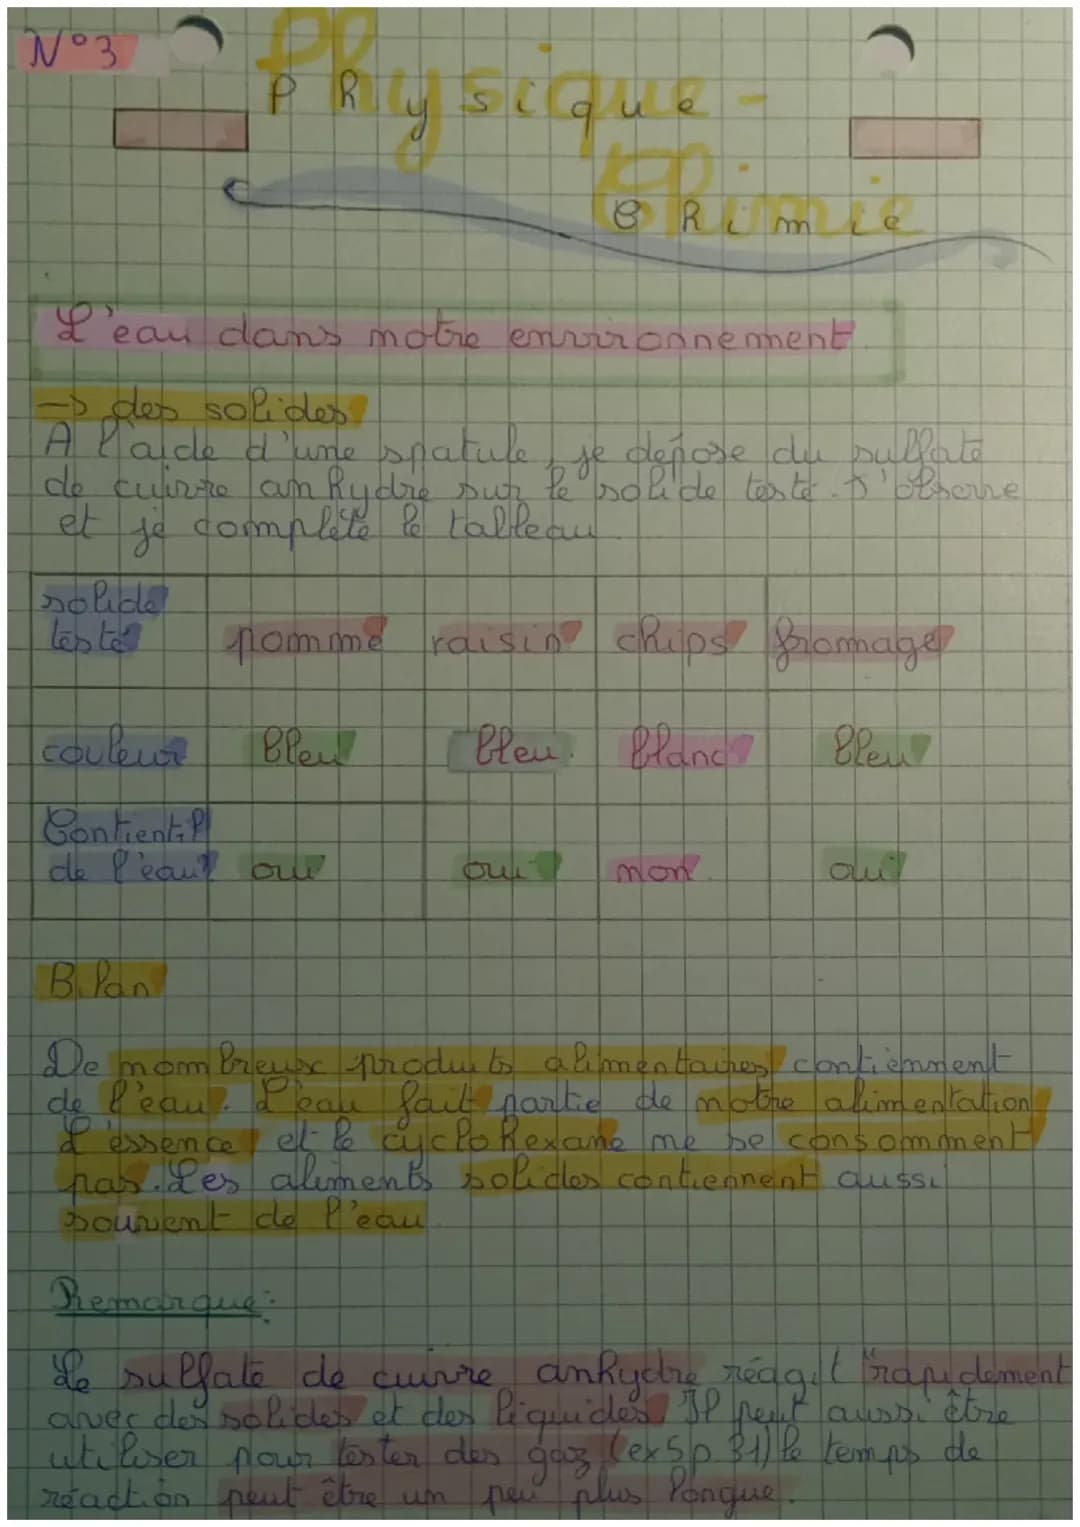 N°3
Physique-
Chimie
L'eau dans notre environnement
→ des solides
A l'aide d'une spatule, je dépose du sulfate
de cuivre anhydre sur le solide testé. J'observe
et je complète le tableau.
solide
testé pomme raisin chips fromage
couleur Bleu bleu blanc Bleu
Contient-il
de l'eau? oui oui non oui
Bilan
De nombreux produits alimentaires contiennent
de l'eau. L'eau fait partie de notre alimentation
L'éssence et le cyclohexane ne se consomment
pas. Les aliments solides contiennent aussi
souvent de l'eau.
Remarque:
Le sulfate de cuivre anhydre réagit "rapidement
avec des solides et des liquides. Il peut aussi être
utiliser pour tester des gaz (ex 5 p 31) le temps de
réaction peut être un peu plus longue.